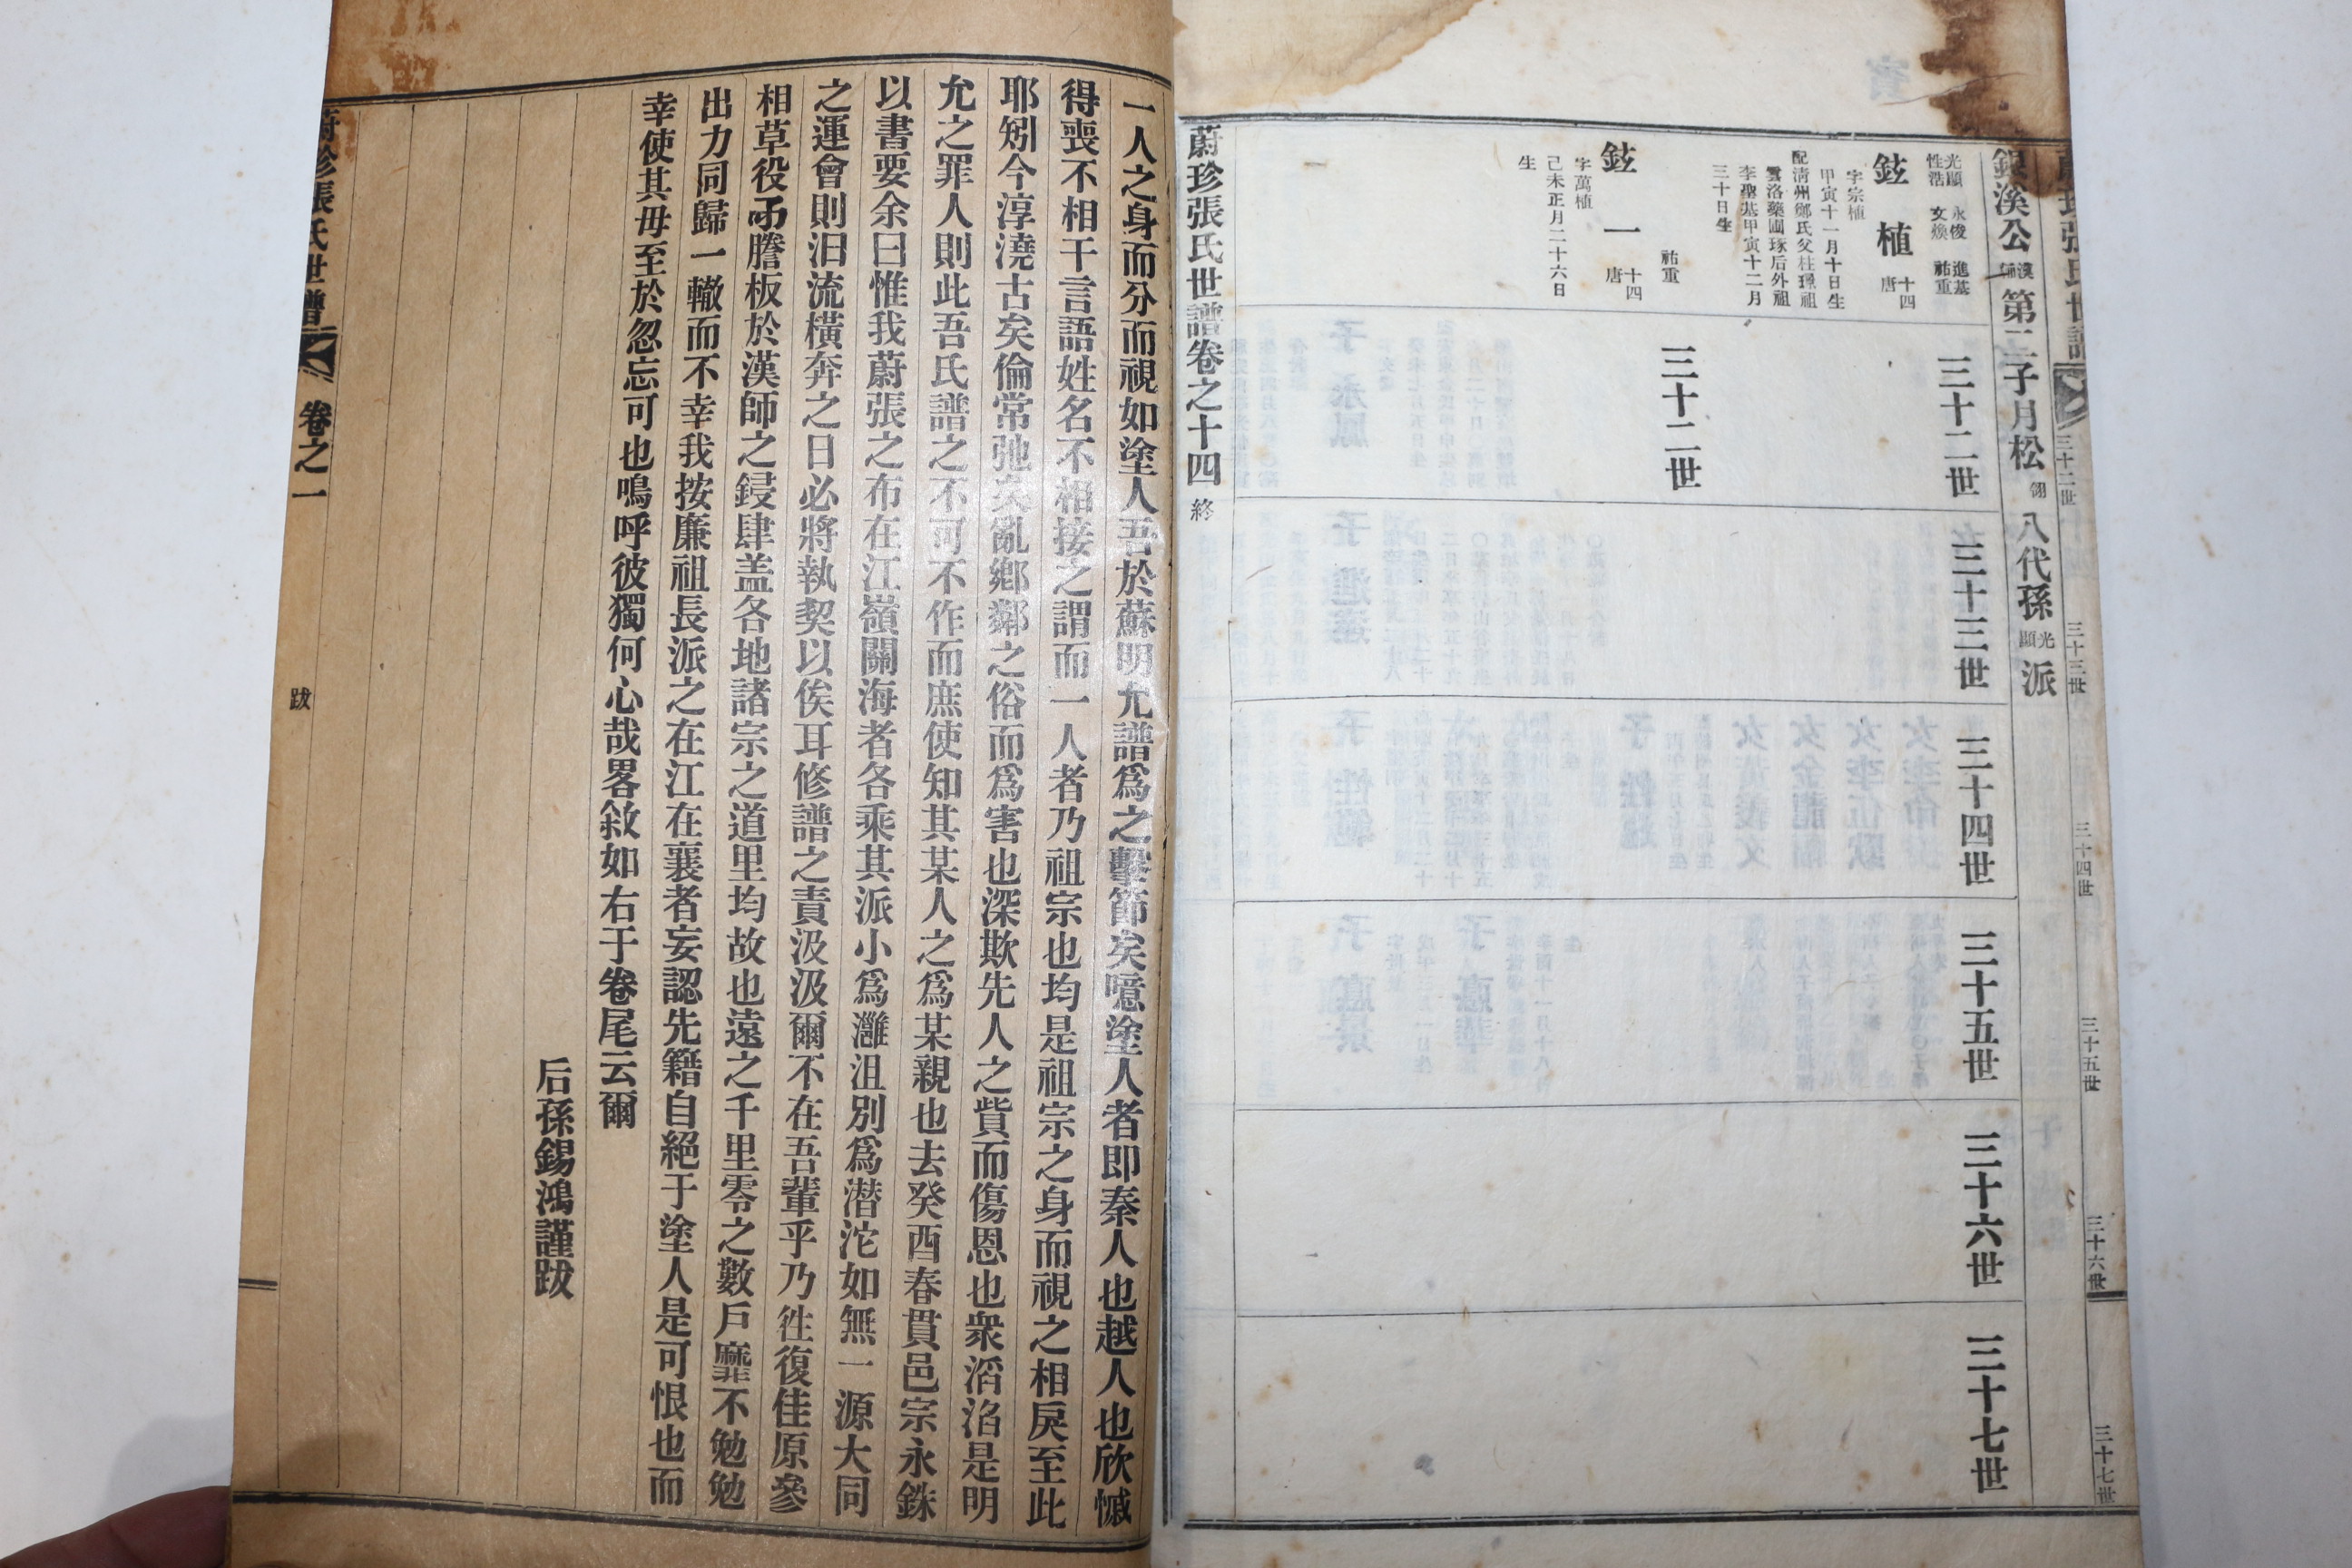 蔚珍張氏世譜
三十二世
三十三世
三十四世
三十五世
三十六世
三十七世
銀溪公 漢 第二子月松 翎 八代孫 光顯 派
三十二世
三十三世
三十四世
三十五世
三十六世
三十七世
光顯 永俊 進基
性浩 文煥 祐重
鉉植 十四唐
字宗植
甲寅十一月十日生
配清州鄭氏父柱璟祖
雲洛藥圃琢后外祖
李聖基甲寅十二月
三十日生
三十二世
祐重
鉉一 十四唐
字萬植
己未正月二十六日
生
蔚珍張氏世譜卷之十四 終
一人之身而分而視如塗人吾於蘇明允譜爲之擊節矣噫塗人者即秦人也越人也欣慽
得喪不相干言語姓名不相接之謂而一人者乃祖宗也均是祖宗之身而視之相戾至此
耶矧今淳澆古矣倫常弛矣亂鄕鄰之俗而爲害也深欺先人之貲而傷恩也衆滔滔是明
允之罪人則此吾氏譜之不可不作而庶使知其某人之爲某親也去癸酉春貫邑宗永銖
以書要余曰惟我蔚張之布在江嶺關海者各乘其派小爲灉沮別爲潜沱如無一源大同
之運會則汨流橫奔之日必將執契以俟耳修譜之責汲汲爾不在吾輩乎乃徃復佳原參
相草役而謄板於漢師之鋟肆盖各地諸宗之道里均故也遠之千里零之數戶靡不勉勉
出力同歸一轍而不幸我按廉祖長派之在江在襄者妄認先籍自絕于塗人是可恨也而
幸使其毋至於忽忘可也嗚呼彼獨何心哉畧敘如右于卷尾云爾
后孫錫鴻謹跋
蔚珍張氏世譜 卷之一 跋